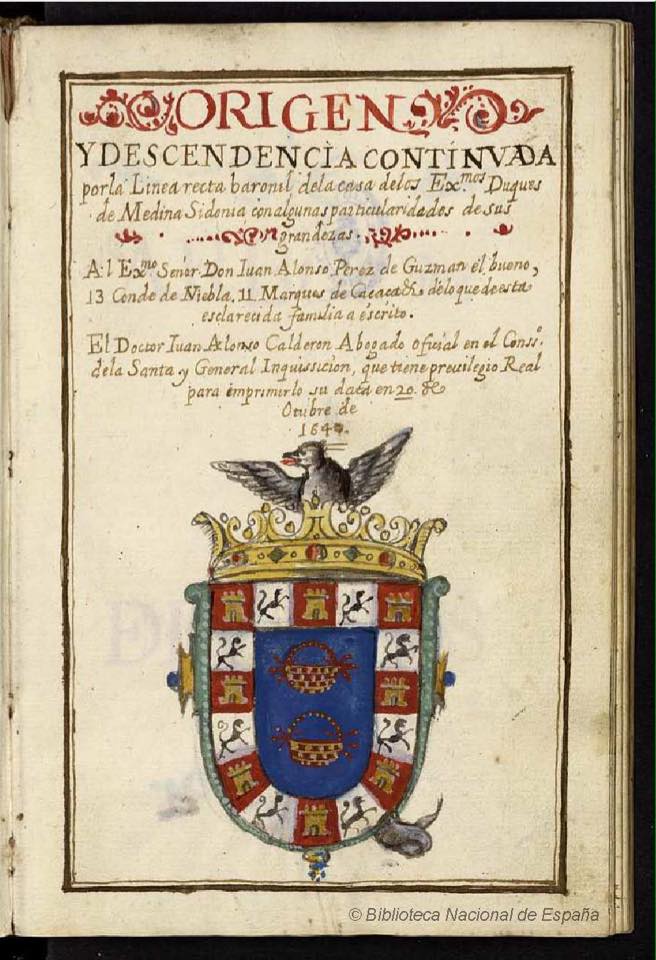 ORIGEN
Y DESCENDENCIA CONTINVADA
por la Linea recta baronil de la casa de los Ex.mos Duques
de Medina Sidonia con algunas particularidades de sus
grandezas.
Al Exmo Señor Don Iuan Alonso Perez de Guzman el bueno,
13 Conde de Niebla. 11 Marques de de lo que de esta
esclarecida familia a escrito.
El Doctor Iuan Alonso Calderon Abogado oficial en el Conss.o
de la Santa y General Inquissicion, que tiene previlegio Real
para imprimirlo su data en 20. de
Otubre de
164
© Biblioteca Nacional de España